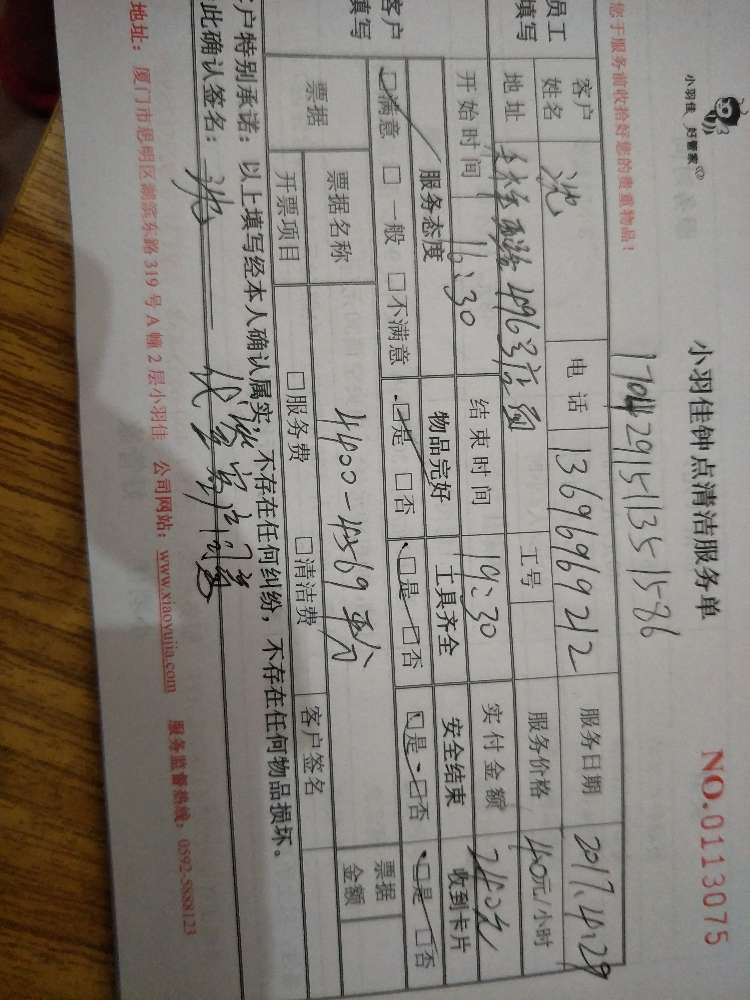 小羽佳 好管家
小羽佳钟点清洁服务单
NO.0113075
您于服务前收拾好您的贵重物品！
员工填写
客户姓名 沈 电话 13696969212 服务日期 2017.4.29
地址 496号店面 工号 服务价格 40元/小时
开始时间 16:30 结束时间 19:30 实付金额 240元
客户填写
服务态度 物品完好 工具齐全 安全结束 收到卡片
☑满意 □一般 □不满意 ☑是 □否 ☑是 □否 ☑是 □否 ☑是 □否
票据
票据名称 票据金额
开票项目 □服务费 □清洁费 客户签名
户特别承诺：以上填写经本人确认属实，不存在任何纠纷，不存在任何物品损坏。
此确认签名：沈
地址：厦门市思明区湖滨东路319号A幢2层小羽佳 公司网站：www.xiaoyujia.com 服务监督热线：0592-5888123